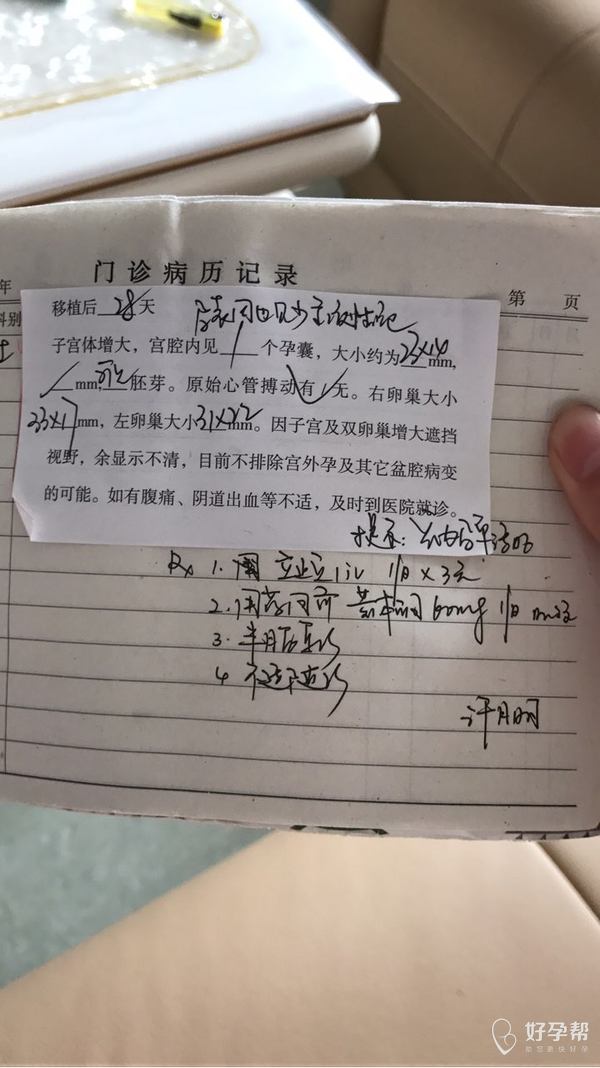 年
门诊病历记录
第 页
科别
移植后 28 天
子宫体增大，宫腔内见 1 个孕囊，大小约为 23×14 mm，
mm 可见 胚芽。原始心管搏动有 ✓ 无。右卵巢大小
33×17 mm，左卵巢大小 31×22 mm。因子宫及双卵巢增大遮挡
视野，余显示不清，目前不排除宫外孕及其它盆腔病变
的可能。如有腹痛、阴道出血等不适，及时到医院就诊。
提示：宫内孕单活胎
Rx 1.
2. 用药同前 黄体酮 60mg
3. 半月后复诊
4. 不适随诊
好孕帮
助您更快好孕